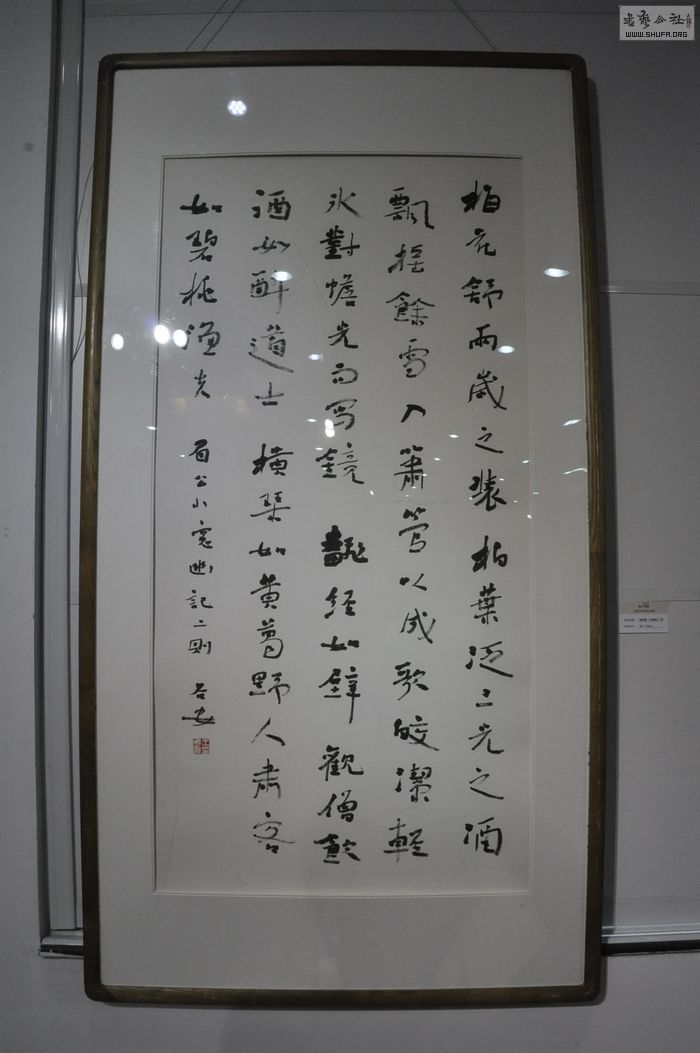 梅花舒兩歲之裝柏葉泛三光之酒
飄搖餘雪入簫管以成歌皎潔輕
冰對蟾光而寫鏡 翻經如壁觀僧飲
酒如醉道士 橫琴如黃葛野人肅客
如碧桃漁父 眉公小窗幽記二則
書藝公社
WWW.SHUFA.ORG